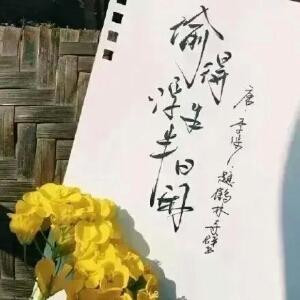 偷得
浮生
半日闲
唐·李涉
题鹤林寺僧舍